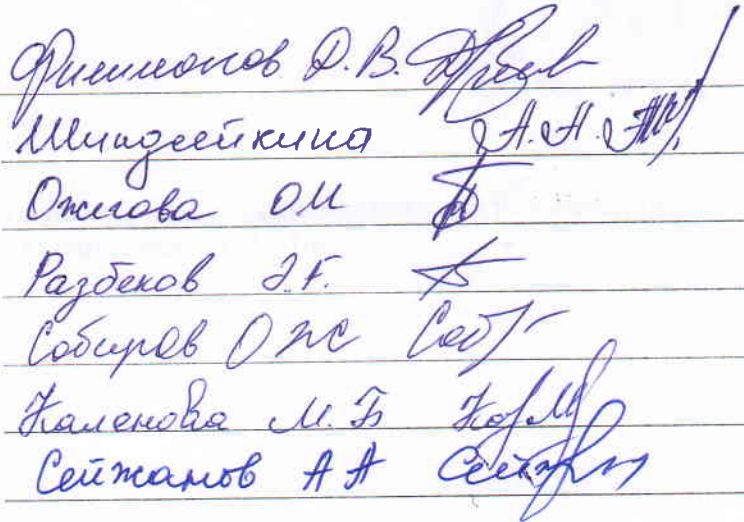 Филимонов Д.В.
Шиндлейкина А.Н.
Ожгова ОМ
Разбеков Э.Г.
Собиров О Ж С
Каленова М.Б
Сейжанов А А